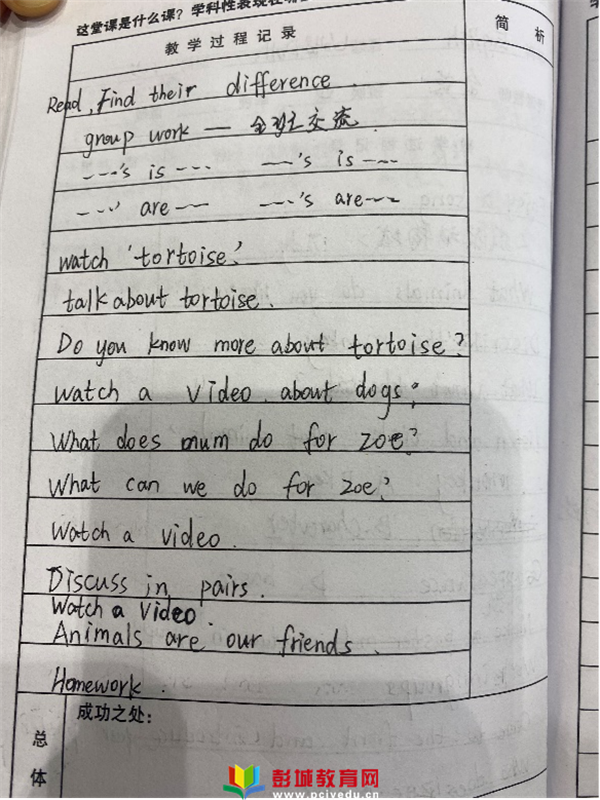 这堂课是什么课？学科性表现在哪
教学过程记录
简析
Read, Find their difference
group work — 全班交流.
---'s is --- ---'s is ---
---' are --- ---'s are ---
watch 'tortoise'.
talk about tortoise.
Do you know more about tortoise?
Watch a video about dogs;
What does mum do for zoe?
What can we do for zoe?
Watch a video.
Discuss in pairs.
Watch a video.
Animals are our friends.
Homework.
总体
成功之处:
彭城教育网
www.pcjyedu.cn